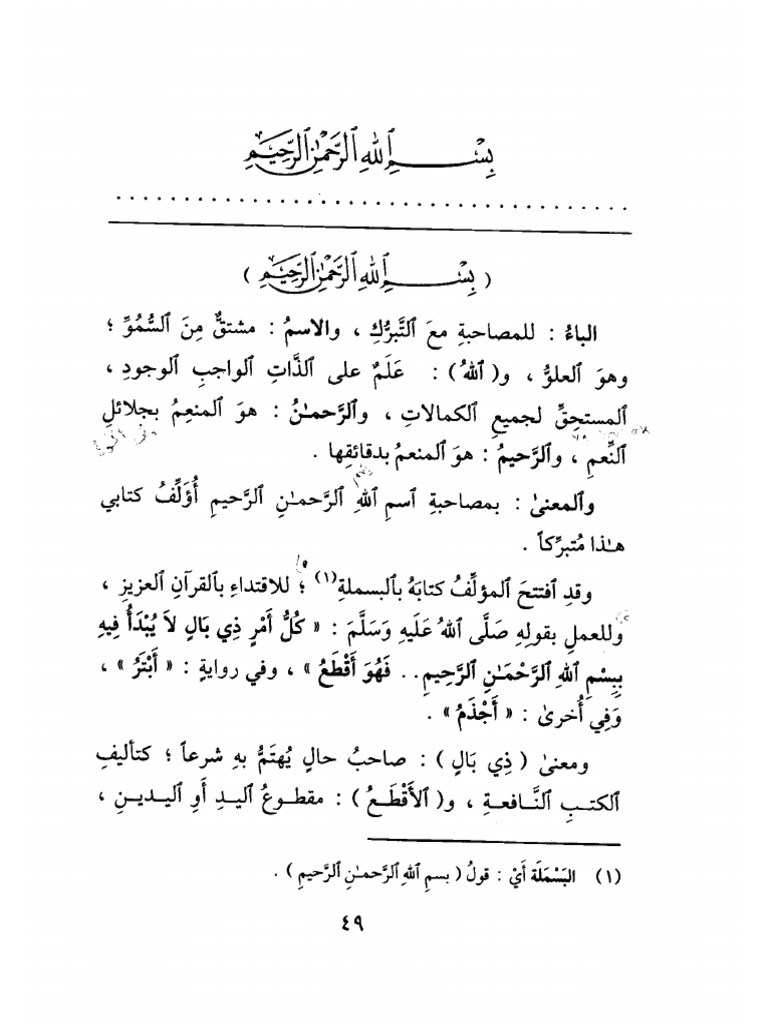 بِسْمِ ٱللهِ ٱلرَّحْمَٰنِ ٱلرَّحِيمِ
......................................
( بِسْمِ ٱللهِ ٱلرَّحْمَٰنِ ٱلرَّحِيمِ )
الباءُ : للمصاحبةِ معَ ٱلتَّبرُّكِ ، والاسمُ : مشتقٌّ مِنَ ٱلسُّمُوِّ ؛
وهوَ ٱلعلوُّ ، و( ٱللهُ ) : عَلَمٌ على ٱلذَّاتِ ٱلواجبِ ٱلوجودِ ،
ٱلمستحِقِّ لجميعِ ٱلكمالاتِ ، وٱلرَّحمـٰنُ : هوَ ٱلمنعِمُ بجلائلِ
ٱلنِّعمِ ، وٱلرَّحيمُ : هوَ ٱلمنعمُ بدقائقِها .
وٱلمعنىٰ : بمصاحبةِ ٱسمِ ٱللهِ ٱلرَّحمـٰنِ ٱلرَّحيمِ أُؤلِّفُ كتابي
هـٰذا مُتبرِّكاً .
وقدِ ٱفتتحَ ٱلمؤلِّفُ كتابَهُ بٱلبسملةِ(١) ؛ للاقتداءِ بٱلقرآنِ ٱلعزيزِ ،
وللعملِ بقولِهِ صَلَّى ٱللهُ عَلَيهِ وَسَلَّمَ : « كُلُّ أَمْرٍ ذِي بَالٍ لاَ يُبْدَأُ فِيهِ
بِبِسْمِ ٱللهِ ٱلرَّحْمَـٰنِ ٱلرَّحِيمِ .. فَهُوَ أَقْطَعُ » ، وفي روايةٍ : « أَبْتَرُ » ،
وَفِي أُخرىٰ : « أَجْذَمُ » .
ومعنىٰ ( ذِي بَالٍ ) : صاحبُ حالٍ يُهتَمُّ بهِ شرعاً ؛ كتأليفِ
ٱلكتبِ ٱلنَّافعةِ ، و( ٱلأَقْطَعُ ) : مقطوعُ ٱليدِ أَوِ ٱليدينِ ،
(١) البَسْمَلَة أَيْ : قولُ ( بسمِ ٱللهِ ٱلرَّحمـٰنِ ٱلرَّحيمِ ) .
٤٩